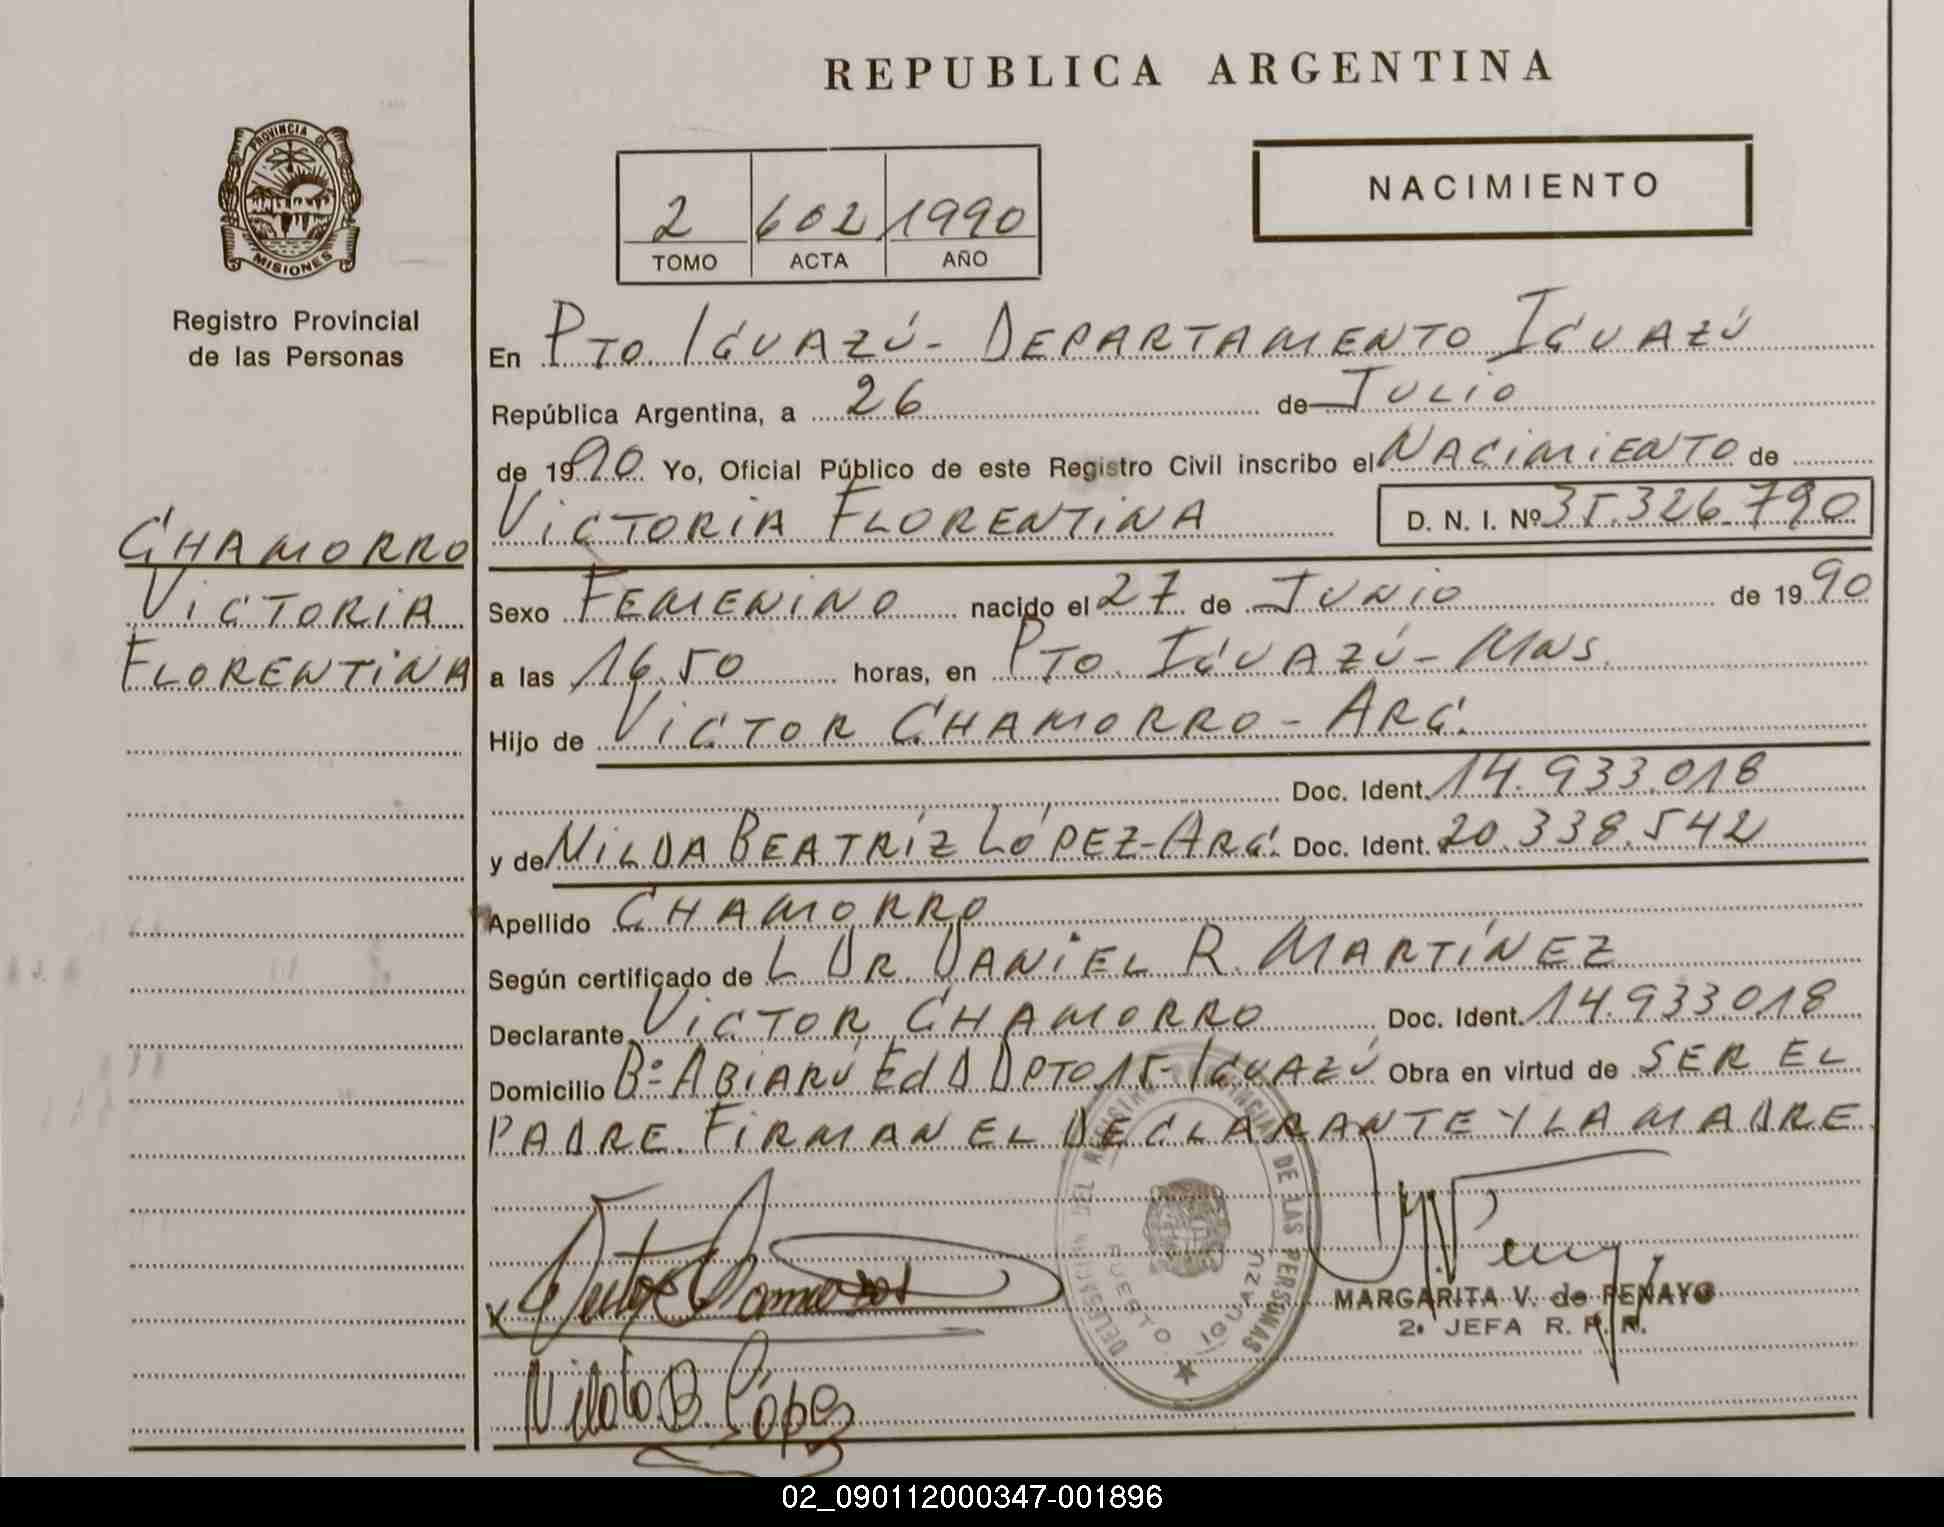 REPUBLICA ARGENTINA
PROVINCIA DE
MISIONES
Registro Provincial
de las Personas
NACIMIENTO
2 602 1990
TOMO ACTA AÑO
En PTO. IGUAZÚ - DEPARTAMENTO IGUAZÚ
República Argentina, a 26 de JULIO
de 1990 Yo, Oficial Público de este Registro Civil inscribo el NACIMIENTO de
VICTORIA FLORENTINA D. N. I. Nº 35.326.790
CHAMORRO
VICTORIA
FLORENTINA
Sexo FEMENINO nacido el 27 de JUNIO de 1990
a las 16.50 horas, en PTO. IGUAZÚ - MNS.
Hijo de VICTOR CHAMORRO - ARG.
Doc. Ident. 14.933.018
y de NILDA BEATRÍZ LÓPEZ - ARG. Doc. Ident. 20.338.542
Apellido CHAMORRO
Según certificado de L DR. DANIEL R. MARTÍNEZ
Declarante VICTOR CHAMORRO Doc. Ident. 14.933018
Domicilio Bº ABIARÚ Ed D DPTO 15 - IGUAZÚ Obra en virtud de SER EL
PADRE. FIRMAN EL DECLARANTE Y LA MADRE
DELEGACION DEL REGISTRO PROVINCIAL DE LAS PERSONAS
PUERTO IGUAZU
MARGARITA V. de PENAYO
2ª JEFA R. P. P.
Nilda B. López
02_090112000347-001896